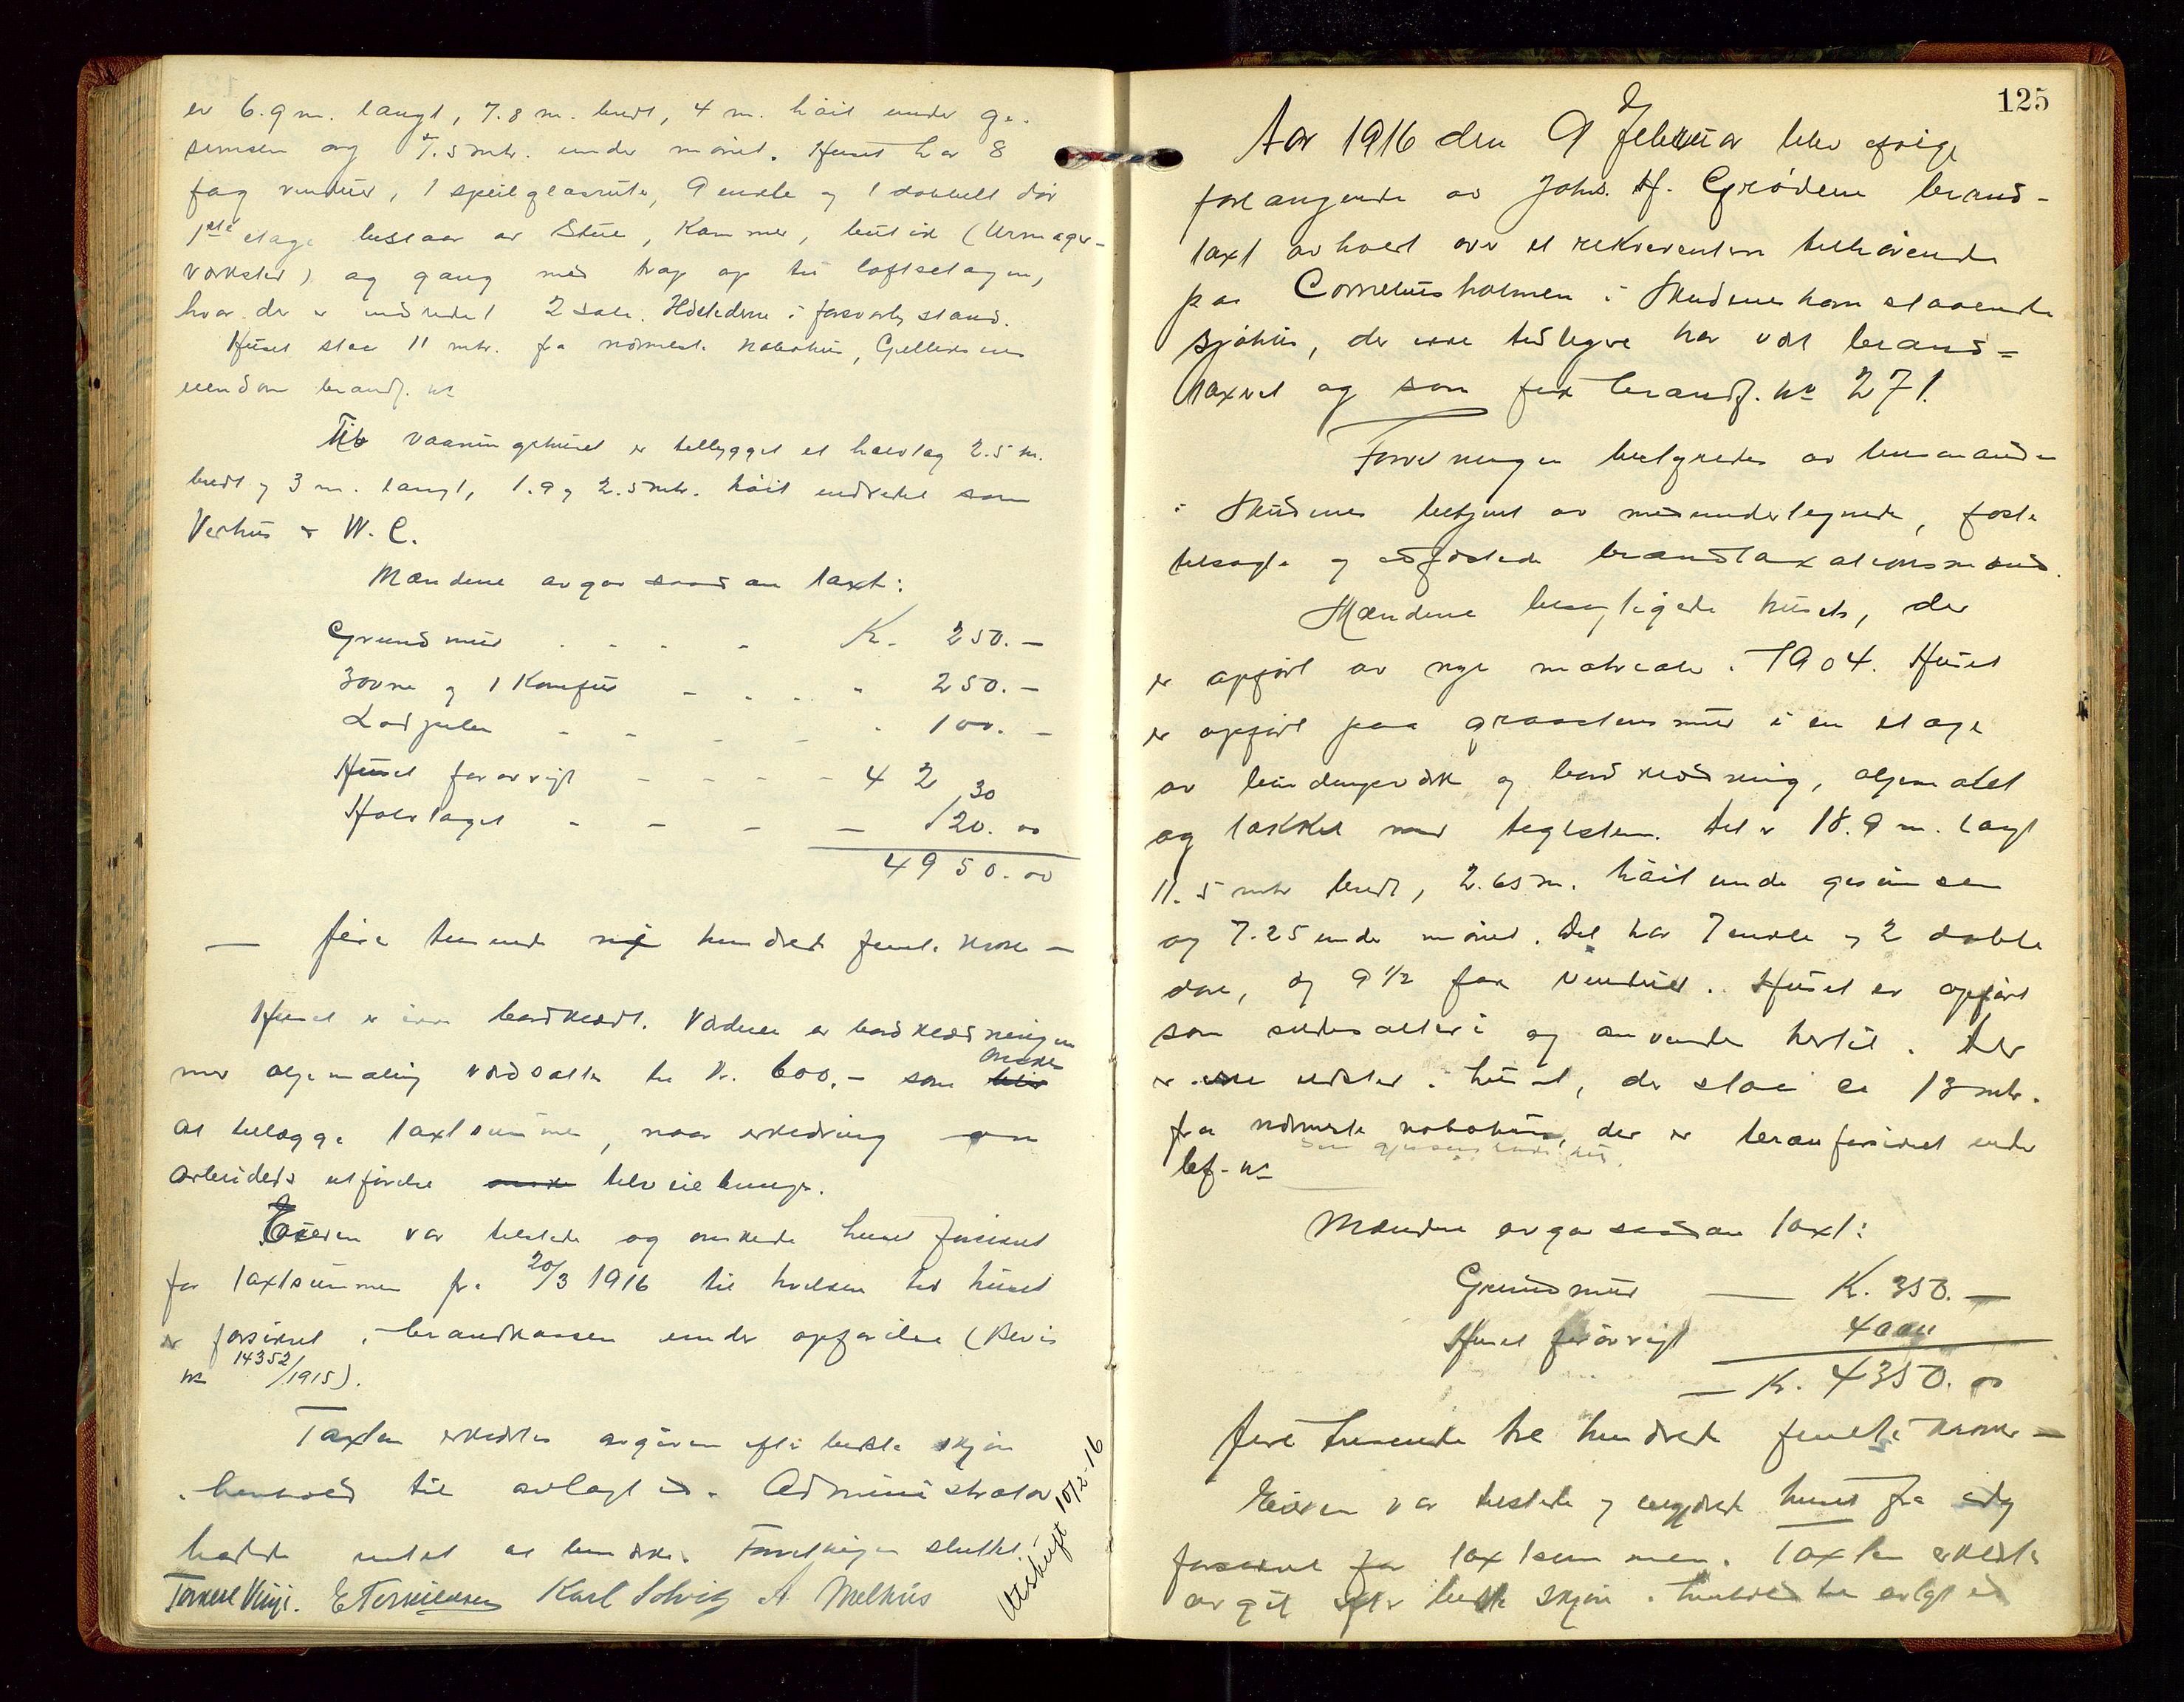 er 6.9 m. langt, 7.8 m. bredt, 4 m. høit under ge-
simsen og 7.5 mtr. under mønet. Huset har 8
fag vinduer, 1 speilglasrute, 9 enkle og 1 dobbelt dør
1ste etage bestaar av Stue, Kammer, butik (Urmager-
værksted) og gang med trap op til loftsetagen,
hvor der er indredet 2 sale. Ildstederne i forsvarlig stand.
Huset staar 11 mtr. fra nærmeste nabohus,
eiendom brandf. No
Til vaaningshuset er tilbygget et halvtag 2.5 m.
bredt og 3 m. langt, 1.9 og 2.5 mtr. høit indredet som
W. C.
Mændene avgav saadan taxt:
Grundmur . . . . Kr. 250.-
3 ovne og 1 Komfur - . . . 250.-
Lodpipen - - - - . 100.-
Huset forøvrigt - - - - 4230
Halvtaget - - - - 120.00
4950.00
- fire tusende ni hundrede femti kroner -
Huset er ikke bordklædt. Værdien av bordklædningen
med oljemaling værdsattes til Kr. 600.- som ønskes
at tillægge taxtsummen, naar erklæring om
arbeidets utførelse tilveiebringes.
Eieren var tilstede og ønskede huset forsikret
for taxtsummen fra 20/3 1916 til hvilken tid huset
er forsikret i brandkassen under opførelse (Bevis
No 14352/1915).
Taxten erklærtes avgiven efter bedste skjøn
i henhold til avlagt ed. Administrator
hadde intet at bemærke. Forretningen sluttet.
Torkel Vinje. E Torkildsen Karl Solvig A. Melhus
Utskrift 10/2-16
125
Aar 1916 den 9 februar blev efter
forlangende av Johs. H. Grødem brand-
taxt avholdt over et rekvirenten tilhørende
paa Corneliusholmen i Skudeneshavn staaende
sjøhus, der ikke tidligere har vært brand-
taxert og som fik brandf. No 271.
Forretningen bestyredes av lensmanden
i Skudenes betjent av medundertegnede, faste
tilsagte og edfæstede brandtaxationsmænd.
Mændene besigtigede huset, der
er opført av nye materialer i 1904. Huset
er opført paa graastensmur i en etage
av bindingsverk og bordklædning, oljemalet
og tækket med teglsten. Det er 18.9 m. langt
11.5 mtr bredt, 2.65 m. høit under gesimsen
og 7.25 under mønet. Det har 7 enkle og 2 doble
døre, og 9 1/2 fag vinduer. Huset er opført
som sildesalteri og anvendes hertil. Der
er ikke ildsted i huset, der staar ca 13 mtr.
fra nærmeste nabohus, der er brandforsikret under
bf. No
Mændene avgav saadan taxt:
Grundmur - K. 350.-
Huset forøvrigt 4000
- K. 4350.00
fire tusende tre hundrede femti kroner -
Eieren var tilstede og begjærte huset fra idag
forsikret for taxtsummen. Taxten erklærtes
avgit efter bedste skjøn i henhold til avlagt ed